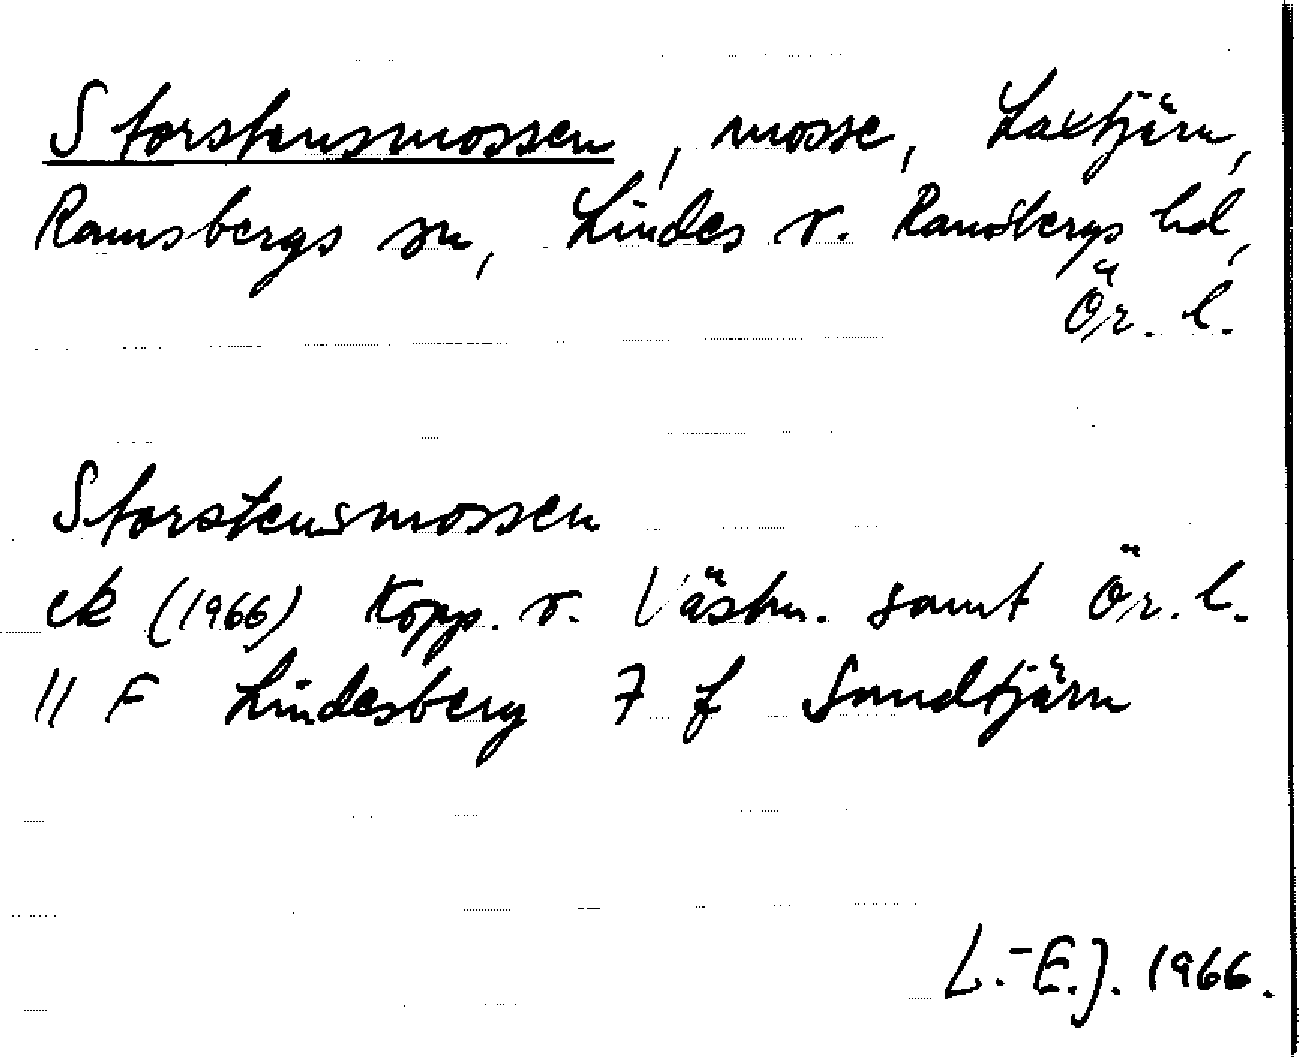 Storstensmossen, mosse, Laxtjärn,
Ramsbergs sn, Lindes o. Ramsbergs hd,
Ör. l.
Storstensmossen
ek (1966) Kopp. o. Västm. samt Ör. l.
11 F Lindesberg 7 f Sandtjärn
L.-E.J. 1966.